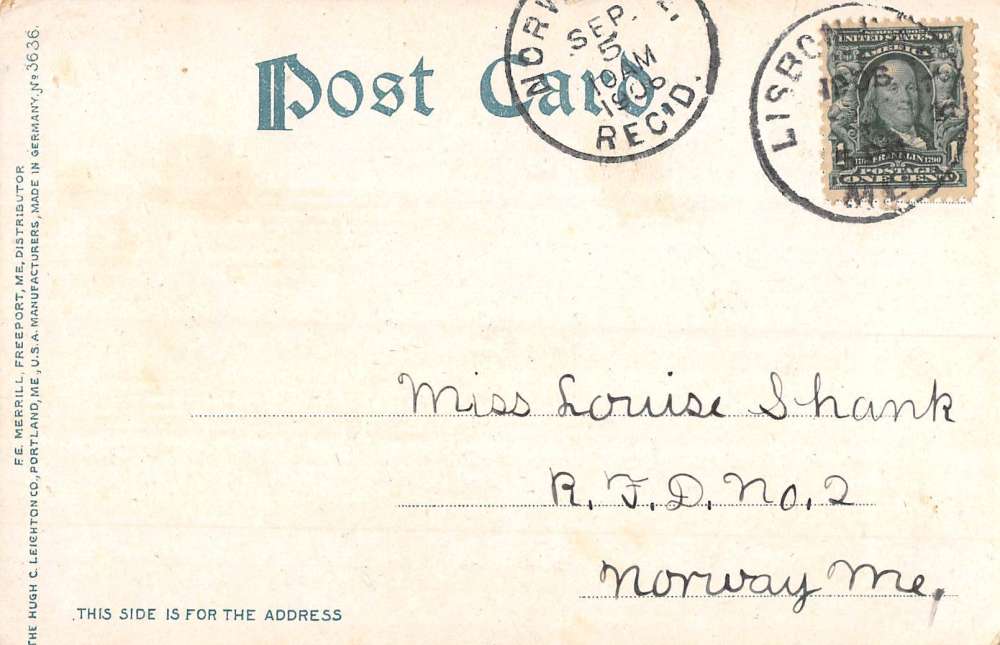 Post Card
NORW
SEP.
5
10 AM
1906
REC'D.
LISBON
ME.
SERIES 1902
UNITED STATES OF
AMERICA
1706 FRANKLIN 1790
1 POSTAGE 1
ONE CENT
Miss Louise Shank
R. F. D. No. 2
Norway Me,
THIS SIDE IS FOR THE ADDRESS
F.E. MERRILL, FREEPORT, ME, DISTRIBUTOR
THE HUGH C. LEIGHTON CO., PORTLAND, ME., U.S.A. MANUFACTURERS, MADE IN GERMANY, No 3636.